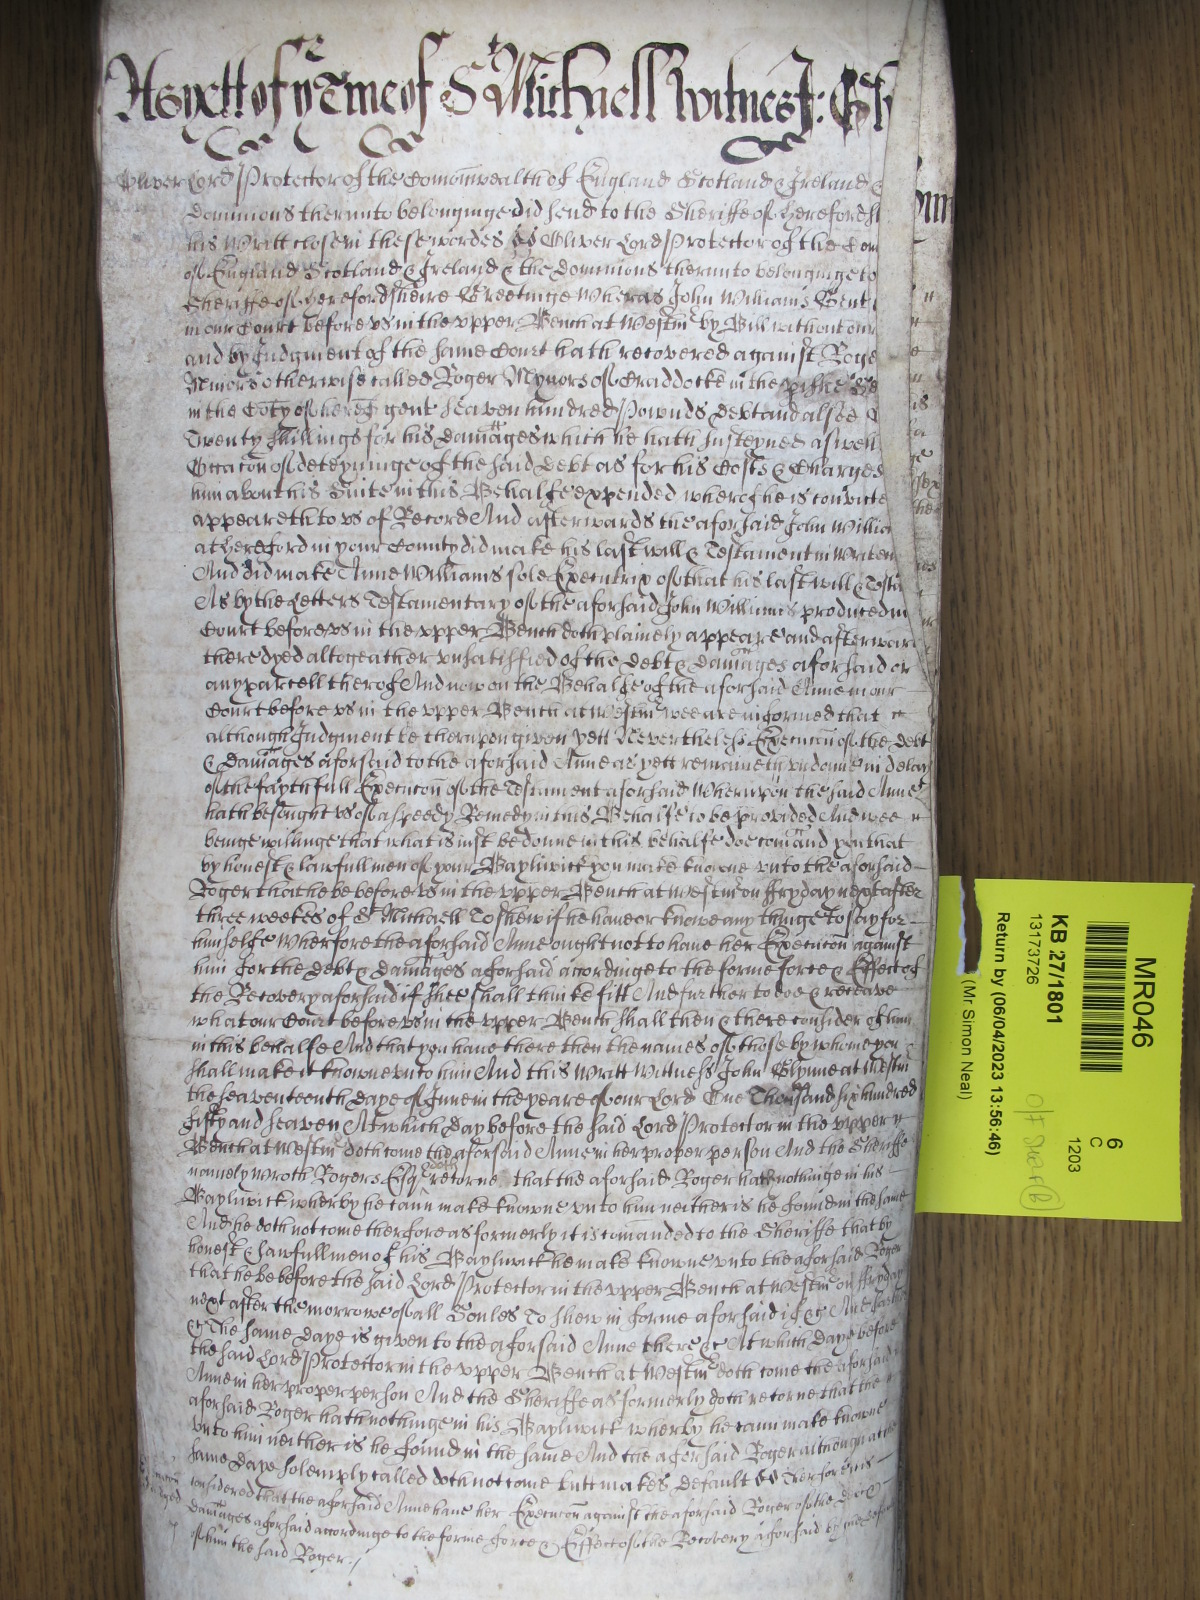 As yett of ye Tme of St Michaell Witnes J: Gl
Oliver Lord Protector of the Comonwealth of England Scotland & Ireland &
dominions therunto belonginge did send to the Sheriffe of Herefordsh
his Writt close in these wordes ss Oliver Lord Protector of the Com
of England Scotland & Ireland & the dominions therunto belonginge to
Sheriffe of Herefordsheire Greetinge Wheras John Williams Gent
in our Court before us in the upper Bench at Westmr by Bill without our
and by Judgment of the same Court hath recovered against Roge
Minors otherwise called Roger Mynors of Craddocke in the
in the Coty of Heref gent seaven hundred Pownds debt and alsoe
Twenty shillings for his damages which he hath susteyned aswell
Occacon of deteyninge of the said debt as for his Costs & Charges
him about his Suite in this Behalfe expended wherof he is convicte
appeareth to us of Record And afterwards the aforsaid John Willia
at Hereford in your County did make his last will & Testament in Writen
And did make Anne Williams sole Executrix of that his last will & Testa
As by the Letters Testamentary of the aforsaid John Williams produced in
Court before us in the upper Bench doth plainely appeare and afterwar
there dyed altogeather unsatisfied of the debt & damages aforsaid or
any parcell therof And now on the Behalfe of the aforsaid Anne in our
Court before us in the upper Bench at Westmr wee are informed that
although Judgment be therupon given yett Nevertheless Execucon of the debt
& damages aforsaid to the aforsaid Anne as yett remaineth undonne in delay
of the faythfull Execucon of the Testament aforsaid Wherupon the said Anne
hath besought us of a speedy Remedy in this Behalfe to be provided And wee
beinge willinge that what is just be donne in this behalfe doe comand you that
by honest & lawfull men of your Bayliwick you make knowne unto the aforsaid
Roger that he be before us in the upper Bench at Westmr on ffryday next after
three weekes of St Michaell To shew if he have or know any thinge to say for
himselfe Wherfore the aforsaid Anne ought not to have her Execucon against
him for the debt & damages aforsaid acordinge to the forme force & Effect of
the Recovery aforsaid if shee shall thinke fitt And further to doe & receave
what our Court before us in the upper Bench shall then & there consider of him
in this behalfe And that you have there then the names of those by whome you
shall make it knowne unto him And this Writt Witness John Glynne at Westm
the seaventeenth daye of June in the yeare of our Lord One Thousand six hundred
fifty and seaven At which day before the said Lord Protector in the upper
Bench at Westmr doth come the aforsaid Anne in her proper person And the Sheriffe
namely Wroth Rogers Esqr doth retorne that the aforsaid Roger hath nothinge in his
Bayliwick wherby he cann make knowne unto him neither is he found in the same
And he doth not come therfore as formerly it is comanded to the Sheriffe that by
honest & lawfull men of his Bayliwick he make knowne unto the aforsaid Roger
that he be before the said Lord Protector in the upper Bench at Westmr on ffryday
next after the morrowe of all Soules To shew in forme aforsaid if &c And further
&c The same daye is given to the aforsaid Anne there &c At which daye before
the said Lord Protector in the upper Bench at Westmr doth come the aforsaid
Anne in her proper person And the Sheriffe as formerly doth retorne that the
aforsaid Roger hath nothinge in his Bayliwick wherby he cann make knowne
unto him neither is he found in the same And the aforsaid Roger although at the
same daye solemply called doth not come butt makes default ss Therfore it is
considered that the aforsaid Anne have her Execucon against the aforsaid Roger of the debt &
damages aforsaid acordinge to the forme force & Effect of the Recovery aforsaid by
of him the said Roger
MR046
KB 27/1801
13173726
Return by (06/04/2023 13:56:46)
(Mr Simon Neal)
6
C
1203